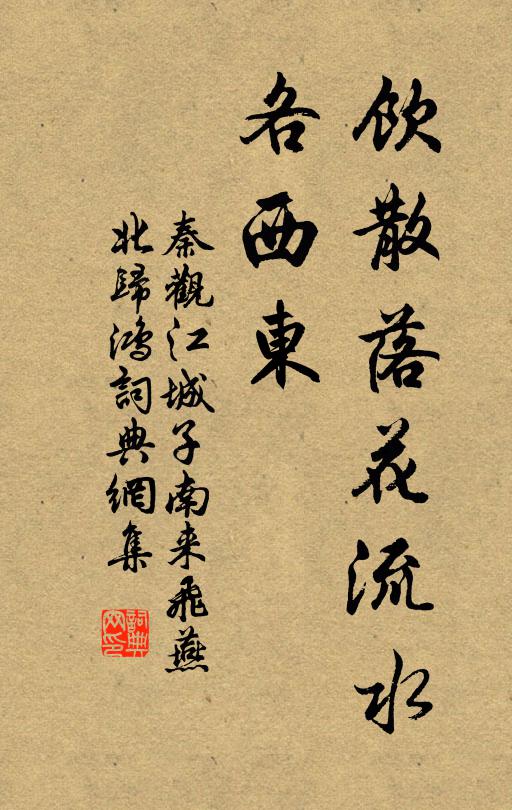 飲散落花流水
各西東
秦觀江城子南来飛燕
北歸鴻詞典網集
詞典
网印